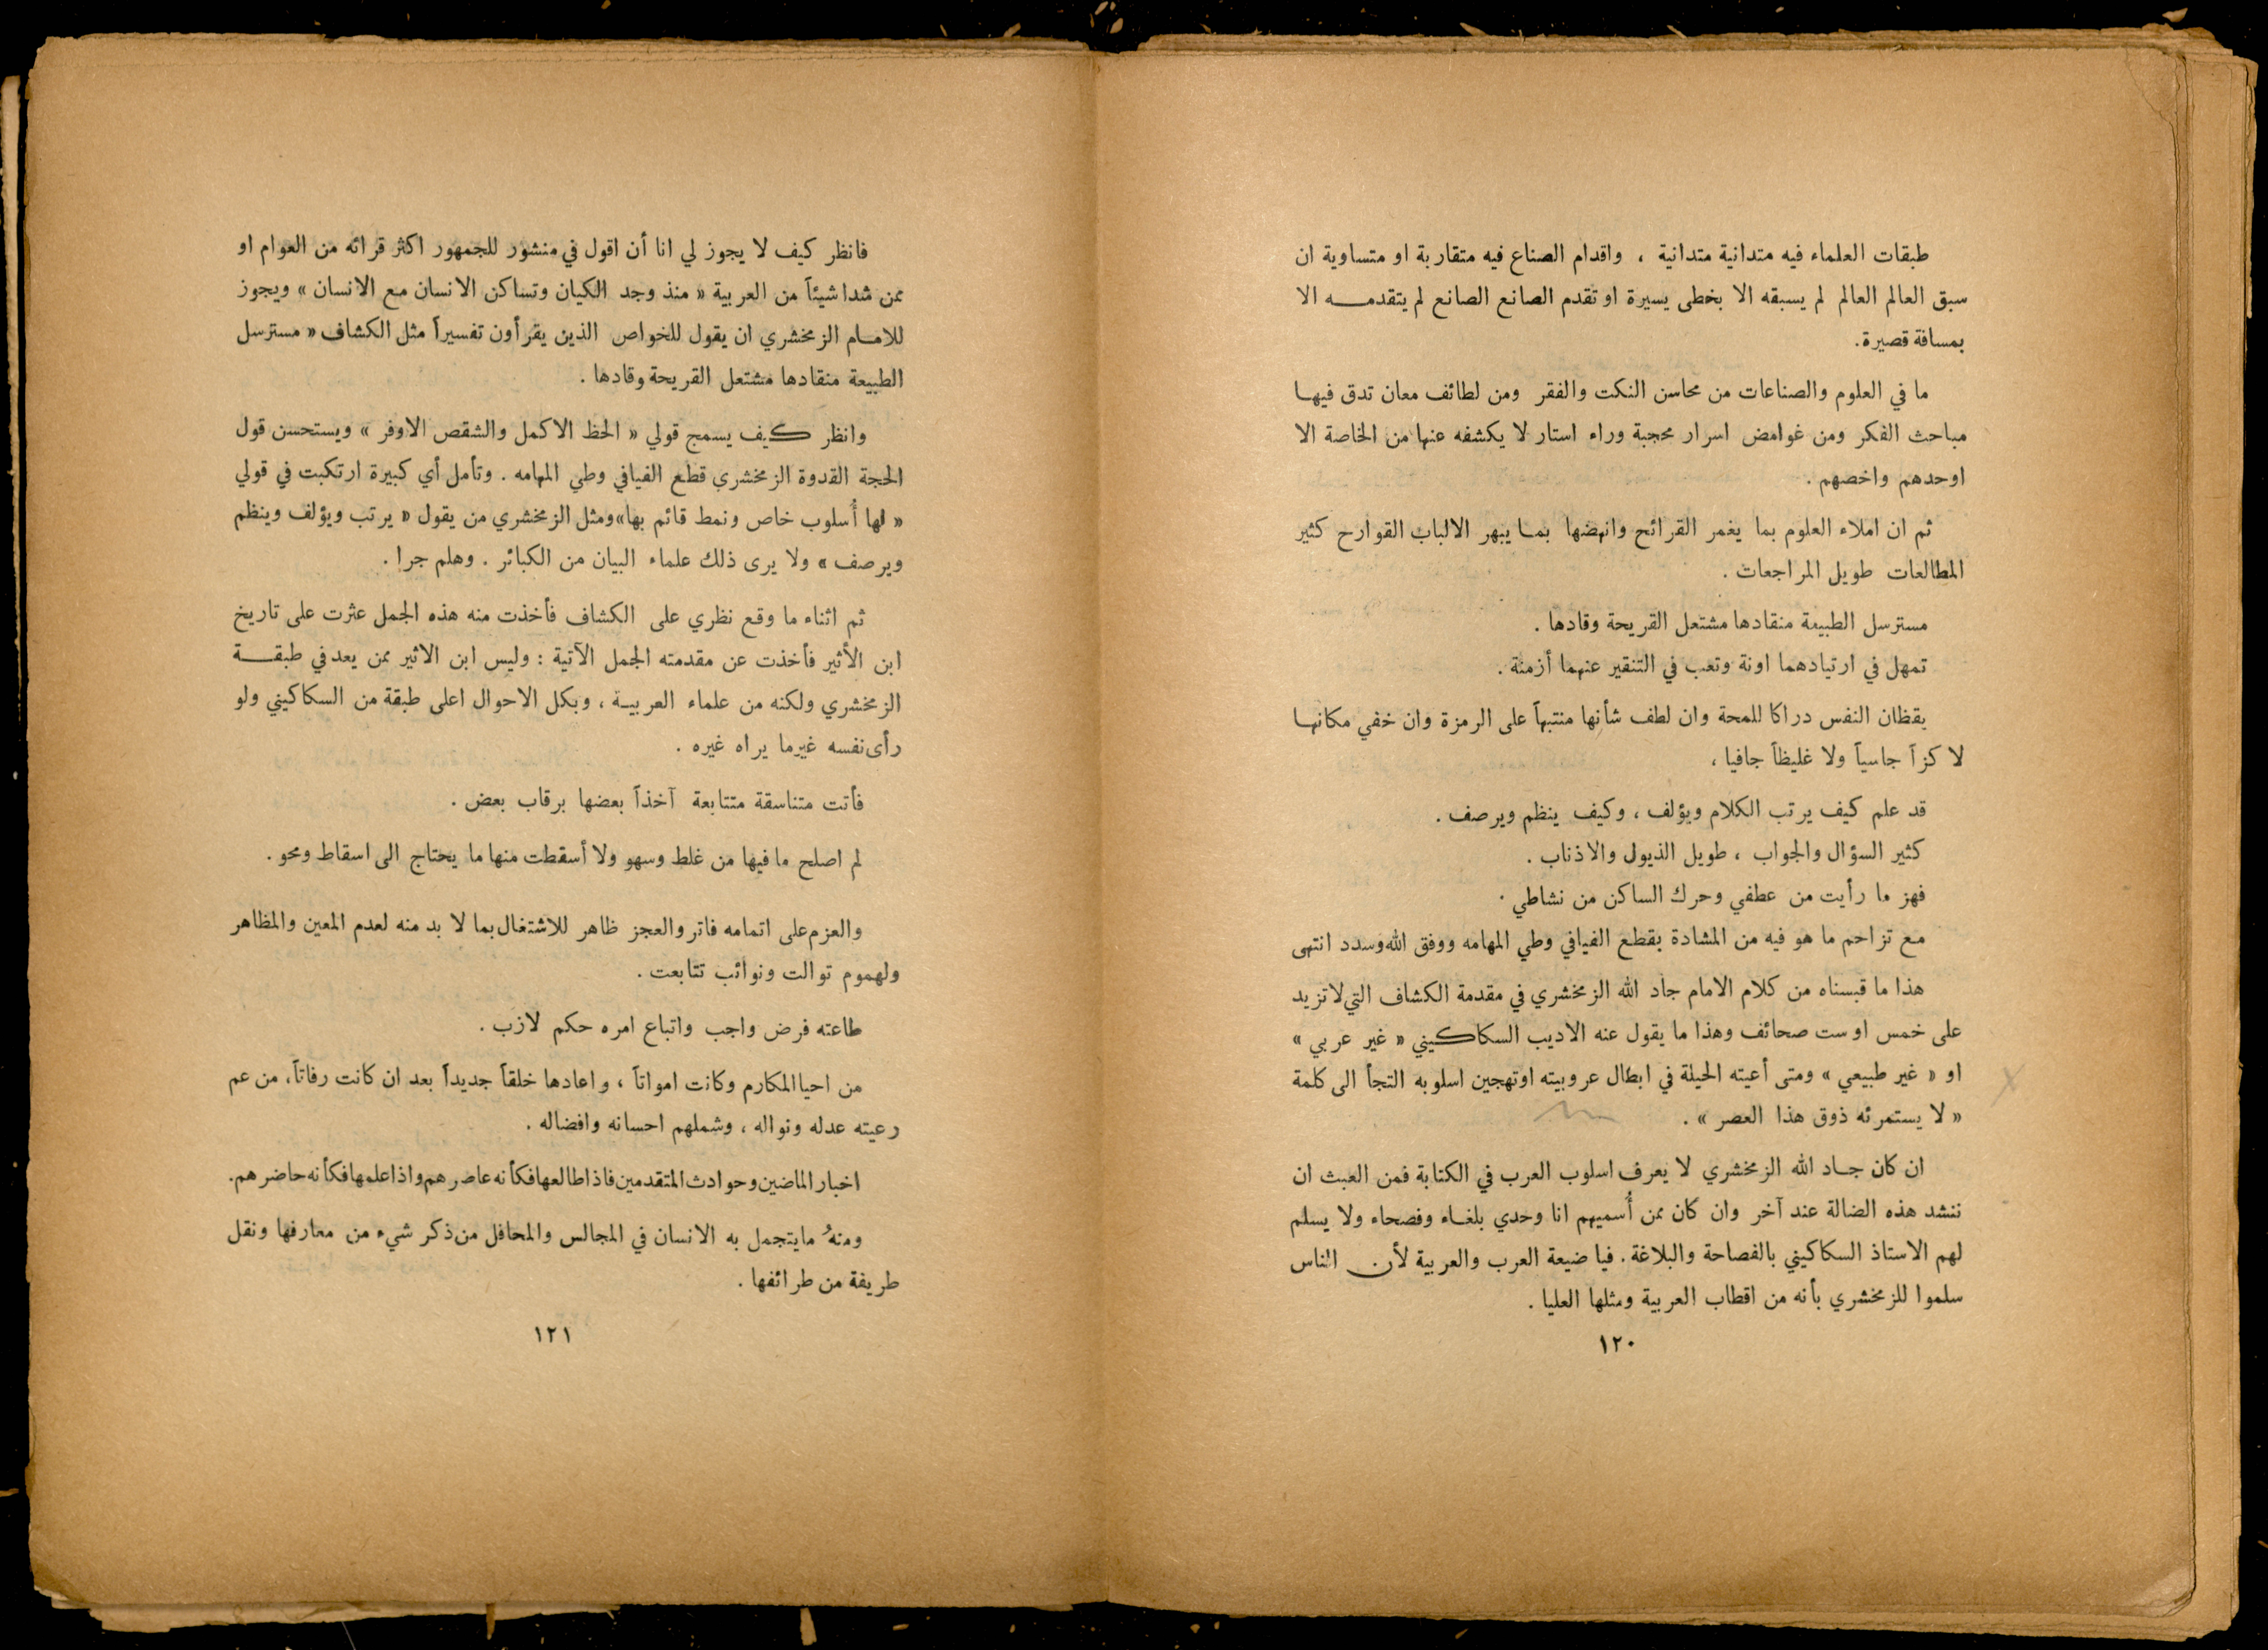 طبقات العلماء فيه متدانية متدانية ، واقدام الصناع فيه متقاربة او متساوية ان
سبق العالم العالم لم يسبقه الا بخطى يسيرة او تقدم الصانع الصانع لم يتقدمه الا
بمسافة قصيرة.
ما في العلوم والصناعات من محاسن النكت والفقر ومن لطائف معان تدق فيها
مباحث الفكر ومن غوامض اسرار محجبة وراء استار لا يكشفه عنها من الخاصة الا
اوحدهم واخصهم .
ثم ان املاء العلوم بما يغمر القرائح وانهضها بما يبهر الالباب القوارح كثير
المطالعات طويل المراجعات .
مسترسل الطبيعة منقادها مشتعل القريحة وقادها .
تمهل في ارتيادهما اونة وتعب في التنقير عنهما أزمنة .
يقظان النفس دراكا للمحة وان لطف شأنها منتبهاً على الرمزة وان خفي مكانها
لا كزاً جاسياً ولا غليظاً جافيا ،
قد علم كيف يرتب الكلام ويؤلف ، وكيف ينظم ويرصف .
كثير السؤال والجواب ، طويل الذيول والاذناب .
فهز ما رأيت من عطفي وحرك الساكن من نشاطي .
مع تزاحم ما هو فيه من المشادة بقطع الفيافي وطي المهامه ووفق الله وسدد انتهى
هذا ما قبسناه من كلام الامام جاد الله الزمخشري في مقدمة الكشاف التي لا تزيد
على خمس او ست صحائف وهذا ما يقول عنه الاديب السكاكيني « غير عربي »
او « غير طبيعي » ومتى أعيته الحيلة في ابطال عروبيته او تهجين اسلوبه التجأ الى كلمة
« لا يستمرئه ذوق هذا العصر » .
ان كان جاد الله الزمخشري لا يعرف اسلوب العرب في الكتابة فمن العبث ان
ننشد هذه الضالة عند آخر وان كان ممن أُسميهم انا وحدي بلغاء وفصحاء ولا يسلم
لهم الاستاذ السكاكيني بالفصاحة والبلاغة . فيا ضيعة العرب والعربية لأن الناس
سلموا للزمخشري بأنه من اقطاب العربية ومثلها العليا .
١٢٠
فانظر كيف لا يجوز لي انا أن اقول في منشور للجمهور اكثر قرائه من العوام او
ممن شدا شيئاً من العربية « منذ وجد الكيان وتساكن الانسان مع الانسان » ويجوز
للامام الزمخشري ان يقول للخواص الذين يقرأون تفسيراً مثل الكشاف « مسترسل
الطبيعة منقادها مشتعل القريحة وقادها .
وانظر كيف يسمج قولي « الحظ الاكمل والشقص الاوفر » ويستحسن قول
الحجة القدوة الزمخشري قطع الفيافي وطي المهامه . وتأمل أي كبيرة ارتكبت في قولي
« لها أُسلوب خاص ونمط قائم بها » ومثل الزمخشري من يقول « يرتب ويؤلف وينظم
ويرصف » ولا يرى ذلك علماء البيان من الكبائر . وهلم جرا .
ثم اثناء ما وقع نظري على الكشاف فأخذت منه هذه الجمل عثرت على تاريخ
ابن الأثير فأخذت عن مقدمته الجمل الآتية : وليس ابن الاثير ممن يعد في طبقة
الزمخشري ولكنه من علماء العربية ، وبكل الاحوال اعلى طبقة من السكاكيني ولو
رأى نفسه غير ما يراه غيره .
فأتت متناسقة متتابعة آخذاً بعضها برقاب بعض .
لم اصلح ما فيها من غلط وسهو ولا أسقطت منها ما يحتاج الى اسقاط ومحو .
والعزم على اتمامه فاتر والعجز ظاهر للاشتغال بما لا بد منه لعدم المعين والمظاهر
ولهموم توالت ونوائب تتابعت .
طاعته فرض واجب واتباع امره حكم لازب .
من احيا المكارم وكانت امواتاً ، واعادها خلقاً جديداً بعد ان كانت رفاتاً ، من عم
رعيته عدله ونواله ، وشملهم احسانه وافضاله .
اخبار الماضين وحوادث المتقدمين فاذا طالعها فكأنه عاصرهم واذا علمها فكأنه حاضرهم.
ومنهُ ما يتجمل به الانسان في المجالس والمحافل من ذكر شيء من معارفها ونقل
طريفة من طرائفها .
١٢١